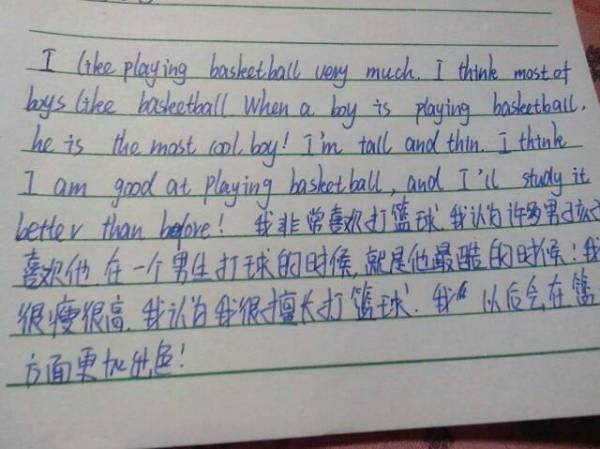 I like playing basketball very much. I think most of
boys like basketball. When a boy is playing basketball,
he is the most cool boy! I'm tall and thin. I think
I am good at playing basketball, and I'll study it
better than before! 我非常喜欢打篮球.我认为许多男孩子
喜欢他.在一个男生打球的时候,就是他最酷的时候!我
很瘦很高.我认为我很擅长打篮球.我 以后会在篮
方面更加出色!